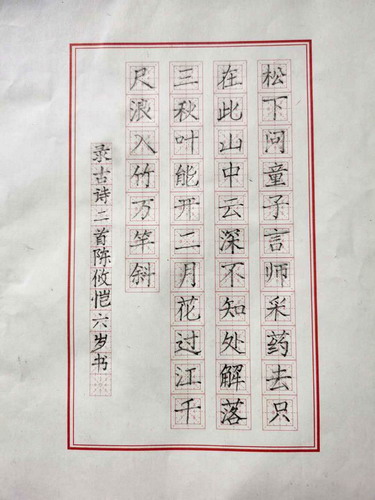 松下问童子言师采药去只
在此山中云深不知处解落
三秋叶能开二月花过江千
尺浪入竹万竿斜
录古诗二首陈攸恺六岁书